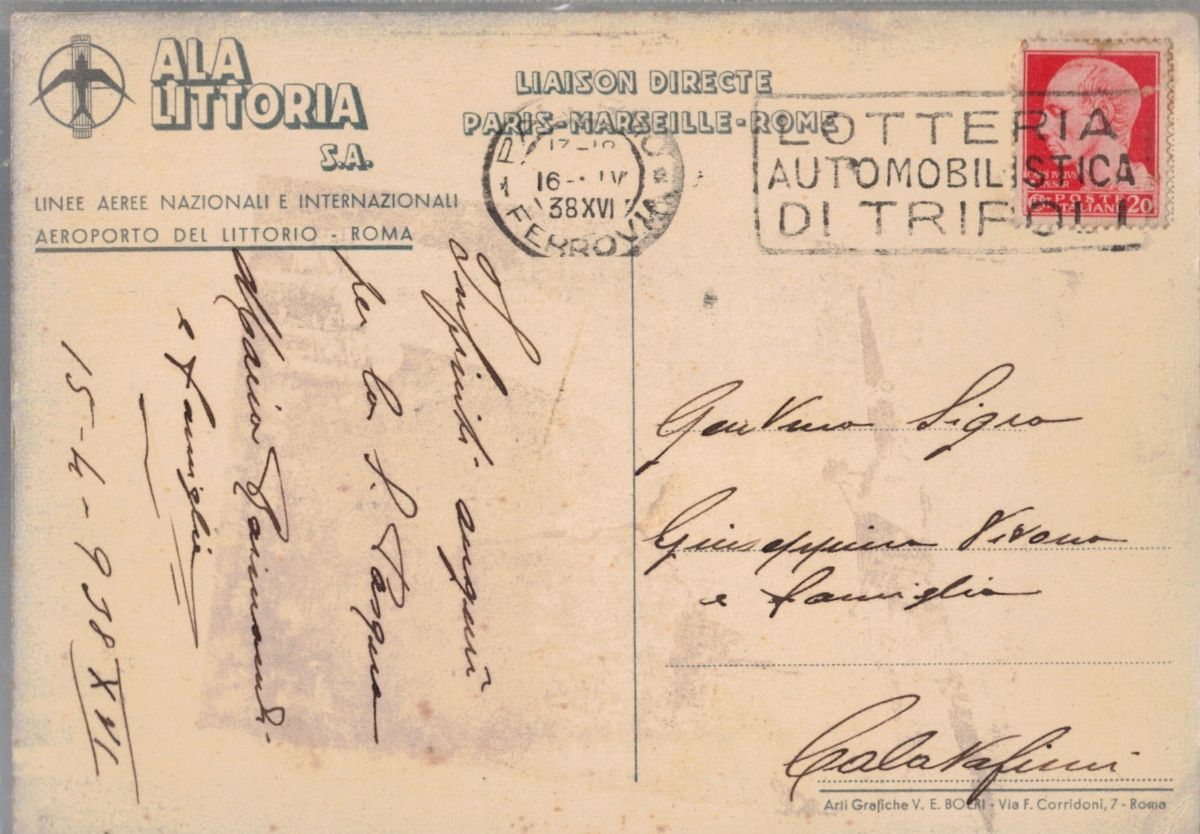 ALA
LITTORIA
S.A.
LINEE AEREE NAZIONALI E INTERNAZIONALI
AEROPORTO DEL LITTORIO - ROMA
LIAISON DIRECTE
PARIS-MARSEILLE-ROME
16
38XVI
FERROVIA
LOTTERIA
AUTOMOBILISTICA
DI TRIPOLI
POSTE
ITALIANE 20
Infiniti auguri
per la S. Pasqua
Mario
e famiglia
15-4-938 XVI
Sigra
Giuseppina
e famiglia
Calatafimi
Arti Grafiche V. E. BOERI - Via F. Corridoni, 7 - Roma